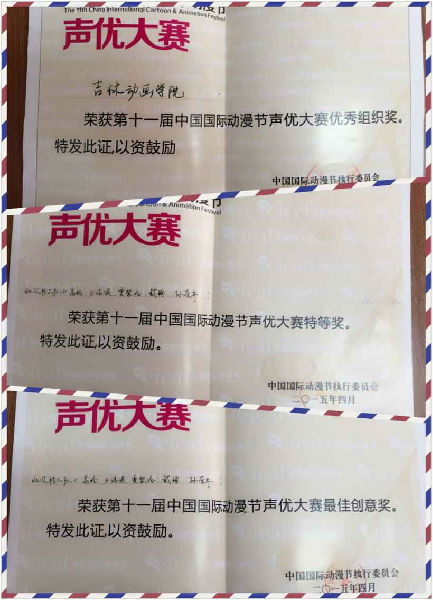 The 11th China International Cartoon & Animation Festival
声优大赛
吉林动画学院
荣获第十一届中国国际动漫节声优大赛优秀组织奖。
特发此证,以资鼓励
中国国际动漫节执行委员会
Cartoon & Animation Festival
声优大赛
荣获第十一届中国国际动漫节声优大赛特等奖。
特发此证,以资鼓励。
中国国际动漫节执行委员会
二〇一五年四月
声优大赛
荣获第十一届中国国际动漫节声优大赛最佳创意奖。
特发此证,以资鼓励。
中国国际动漫节执行委员会
二〇一五年四月